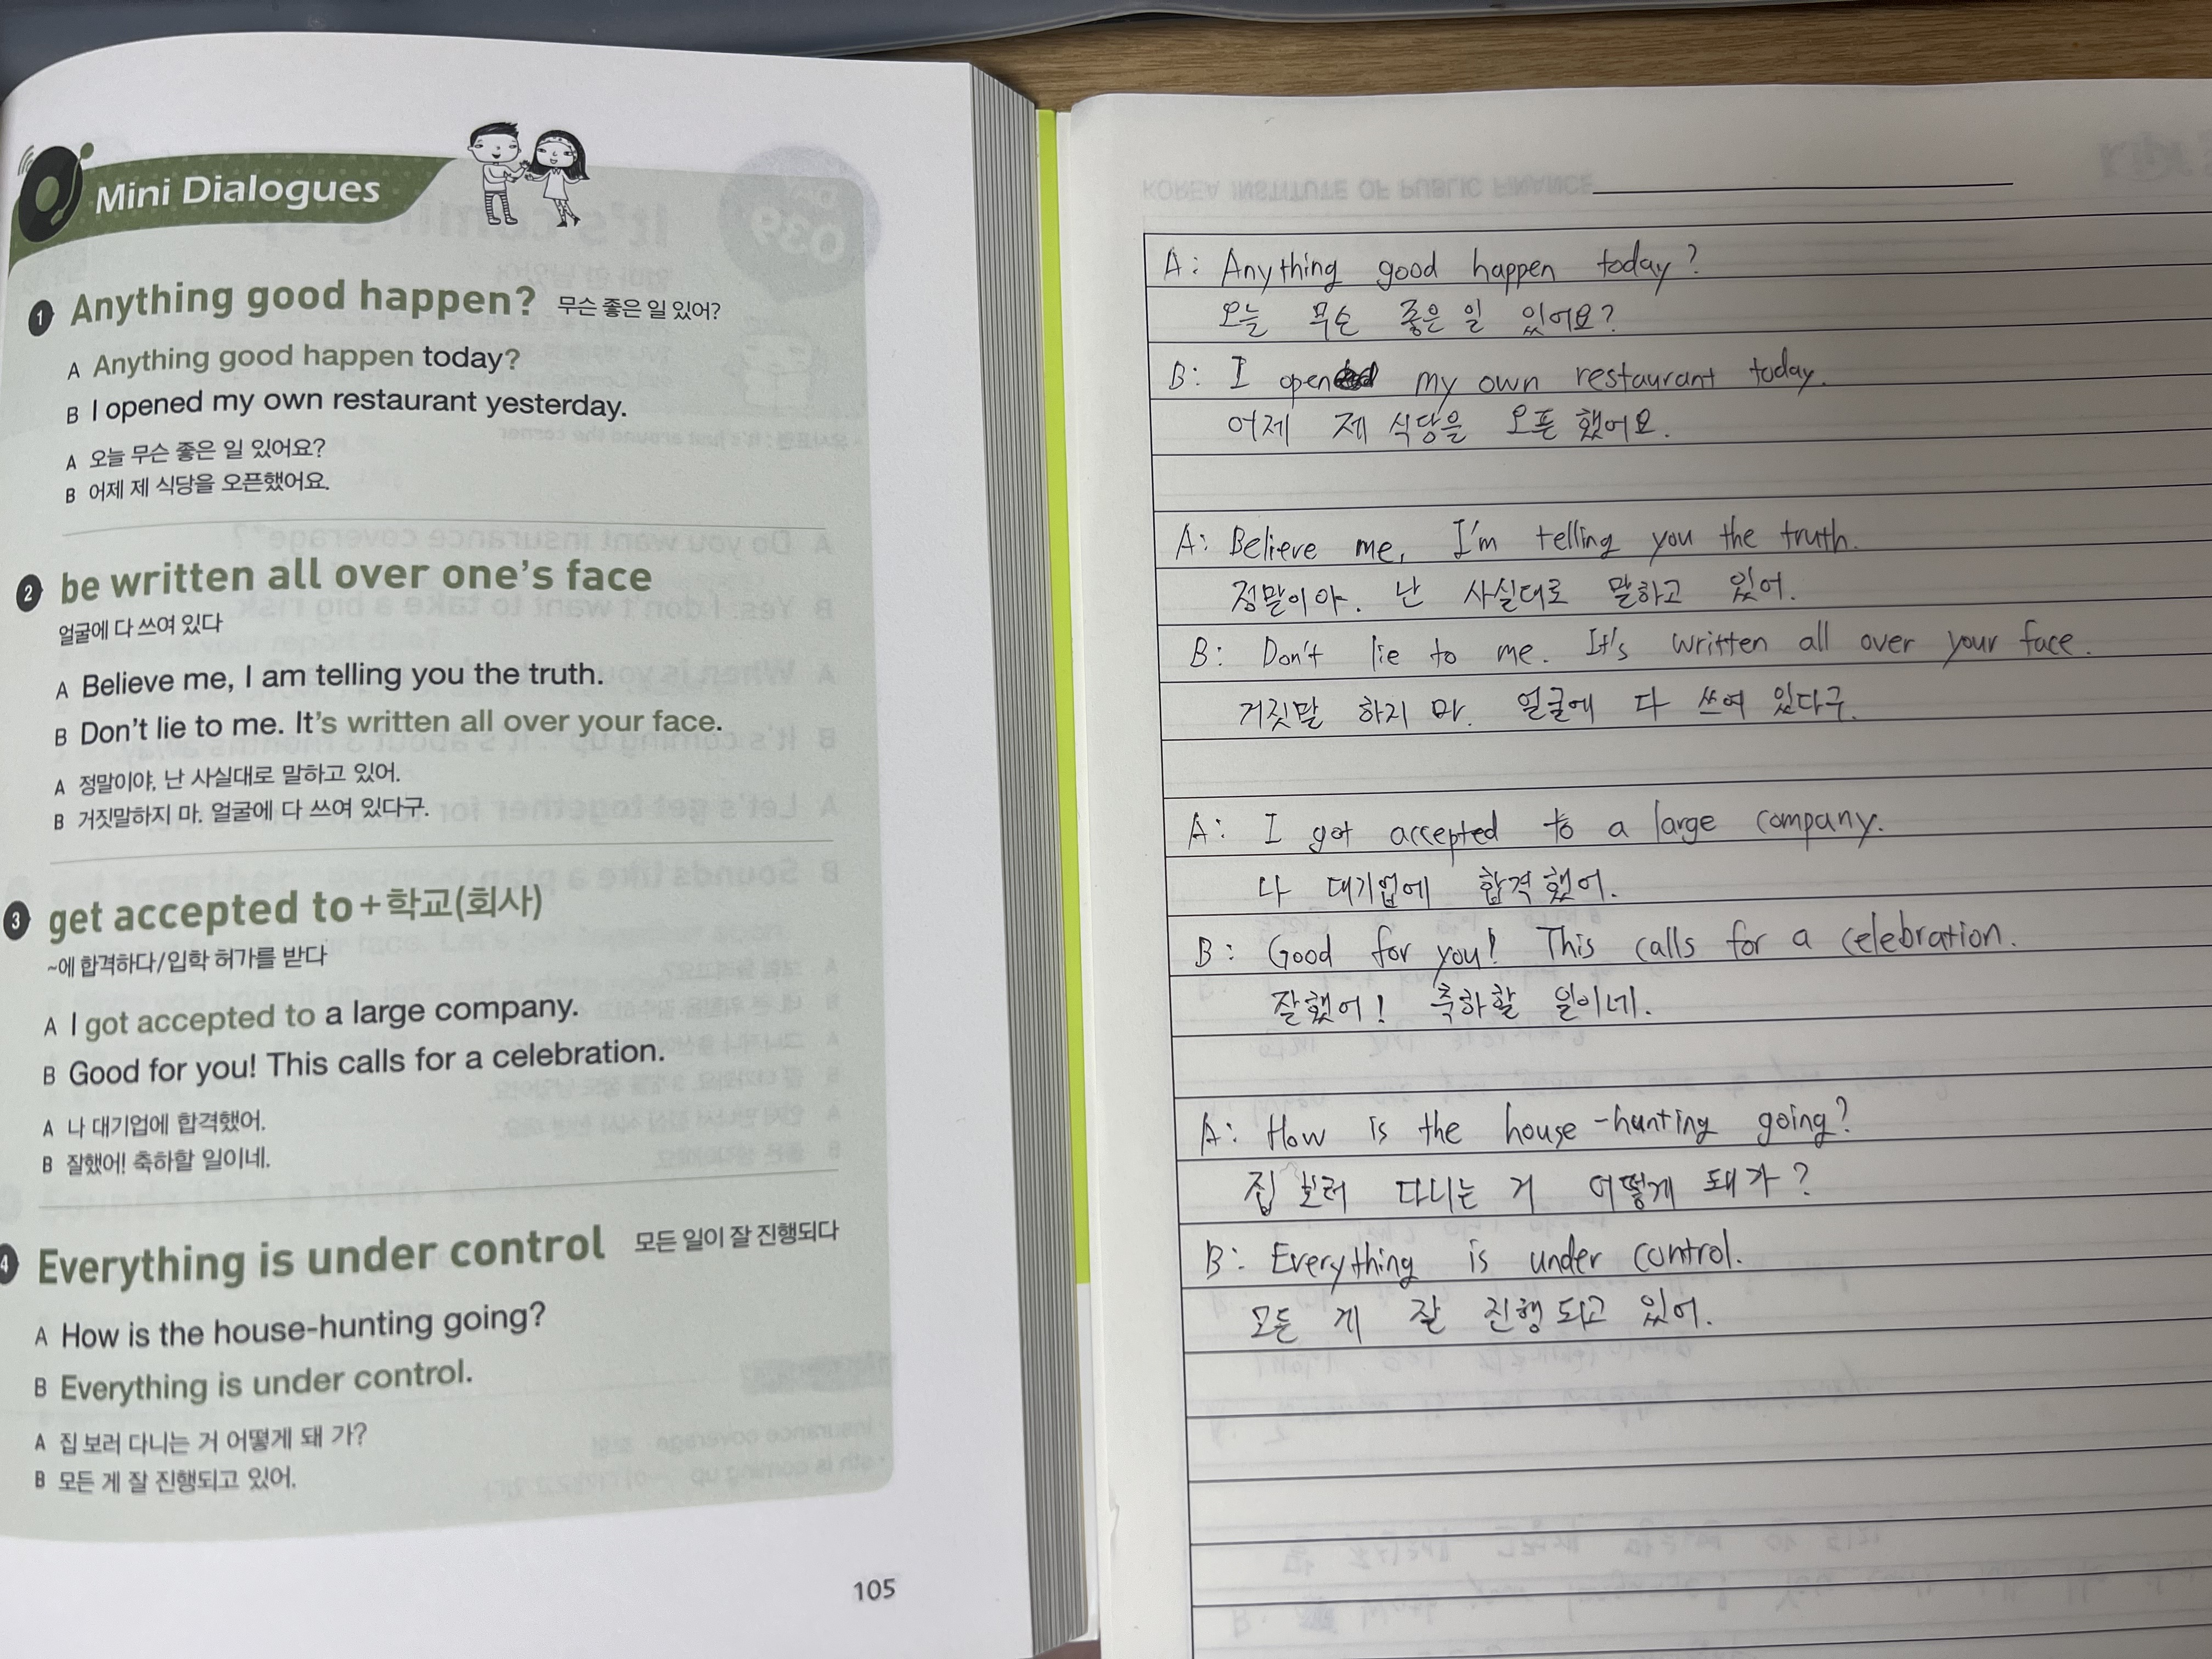 Mini Dialogues
1 Anything good happen? 무슨 좋은 일 있어?
A Anything good happen today?
B I opened my own restaurant yesterday.
A 오늘 무슨 좋은 일 있어요?
B 어제 제 식당을 오픈했어요.
2 be written all over one's face
얼굴에 다 쓰여 있다
A Believe me, I am telling you the truth.
B Don't lie to me. It's written all over your face.
A 정말이야, 난 사실대로 말하고 있어.
B 거짓말하지 마. 얼굴에 다 쓰여 있다구.
3 get accepted to+학교(회사)
~에 합격하다/입학 허가를 받다
A I got accepted to a large company.
B Good for you! This calls for a celebration.
A 나 대기업에 합격했어.
B 잘했어! 축하할 일이네.
4 Everything is under control 모든 일이 잘 진행되다
A How is the house-hunting going?
B Everything is under control.
A 집 보러 다니는 거 어떻게 돼 가?
B 모든 게 잘 진행되고 있어.
105
KOREA INSTITUTE OF PUBLIC FINANCE
A: Anything good happen today?
오늘 무슨 좋은 일 있어요?
B: I open my own restaurant today.
어제 제 식당을 오픈 했어요.
A: Believe me, I'm telling you the truth.
정말이야. 난 사실대로 말하고 있어.
B: Don't lie to me. It's written all over your face.
거짓말 하지 마. 얼굴에 다 쓰여 있다구.
A: I got accepted to a large company.
나 대기업에 합격했어.
B: Good for you! This calls for a celebration.
잘했어! 축하할 일이네.
A: How is the house-hunting going?
집 보러 다니는 거 어떻게 돼 가?
B: Everything is under control.
모든 게 잘 진행되고 있어.